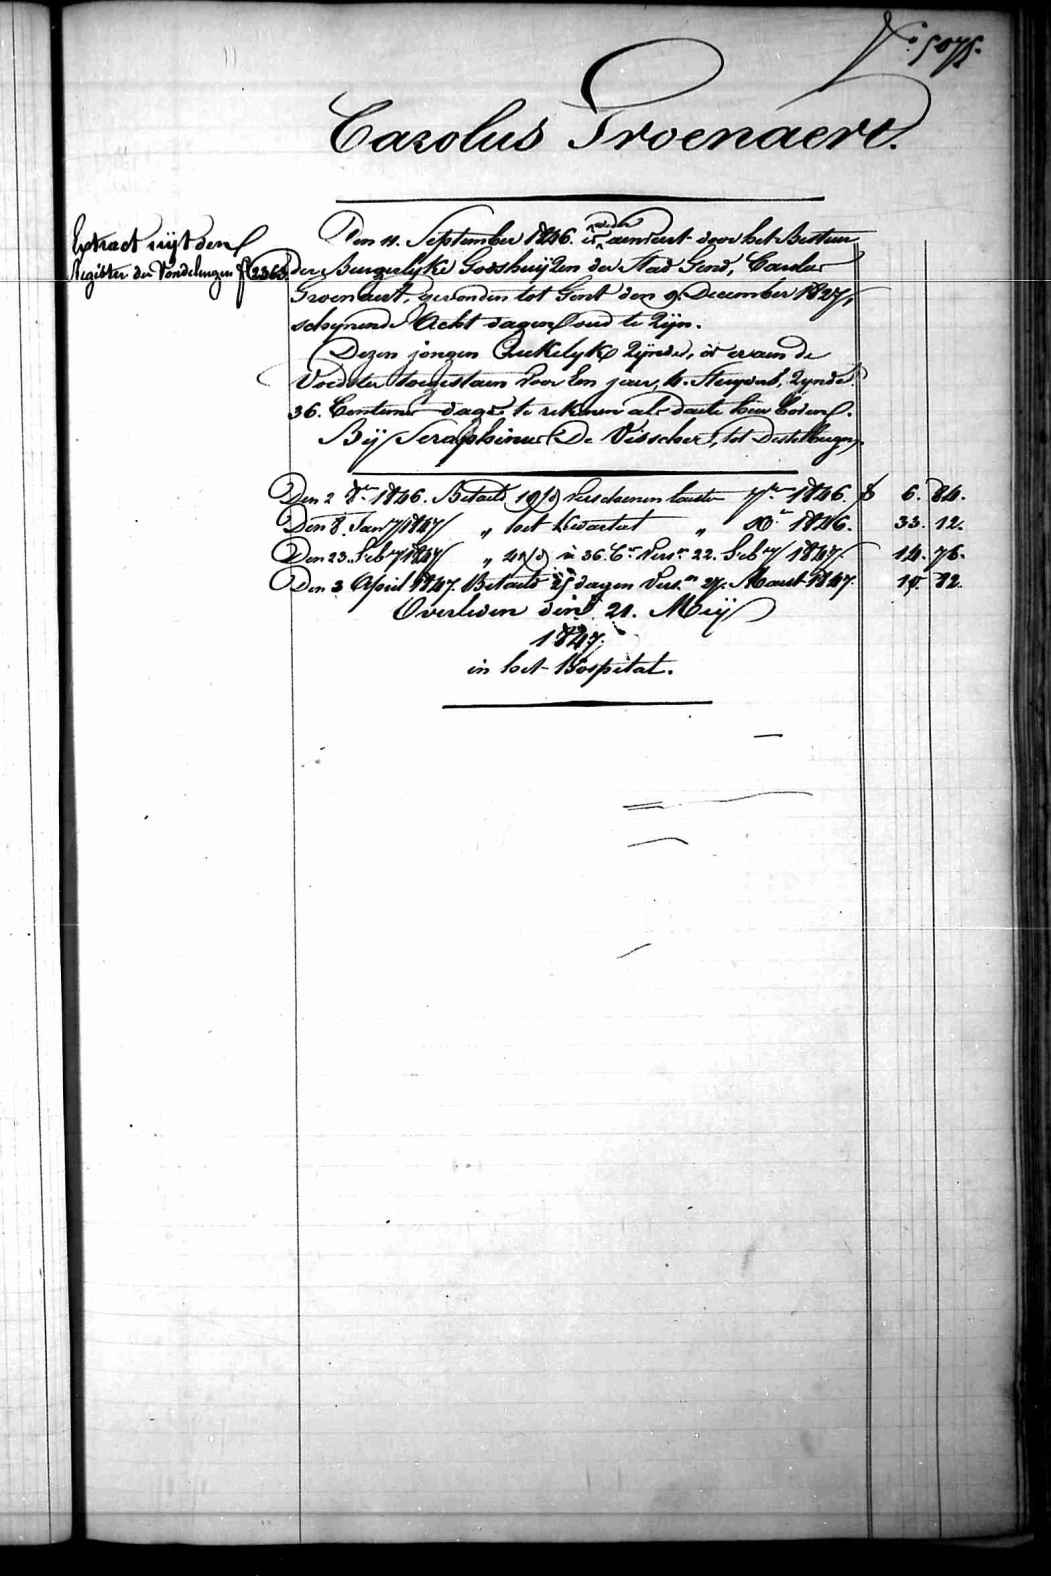 N.o 5075.
Carolus Groenaert.
Extract uijt den
Register der Vondelingen f.o 2363.
Den 11. September 1846. is weder aenveert door het Bestuur
der Burgerlyke Godshuijzen der Stad Gend, Carolus
Groenaert, gevonden tot Gent den 9. December 1827,
schynende Acht dagen oud te zijn.
Dezen jongen Ziekelyk zijnde, is er aen de
Voedster toegestaen voor Een jaer, zynde
36. Centimes dags te rekenen als date hier boven.
Bij Seraphinus De Visscher, tot Destelbergen
Den 2 8.bre 1846. Betaeld 19/d verschenen 7.bre 1846. f 6. 84.
Den 8. Jan.y 1847 „ het Kwartael „ X.r 1846. 33. 12.
Den 23. Feb.y 1847 „ 41/d à 36. C.s Vers.n 22. Feb.y 1847 14. 76.
Den 3 April 1847. Betaeld dagen Vers.n Maert 1847. 82.
Overleden den 21. Meij
1847.
in het Hospitael.